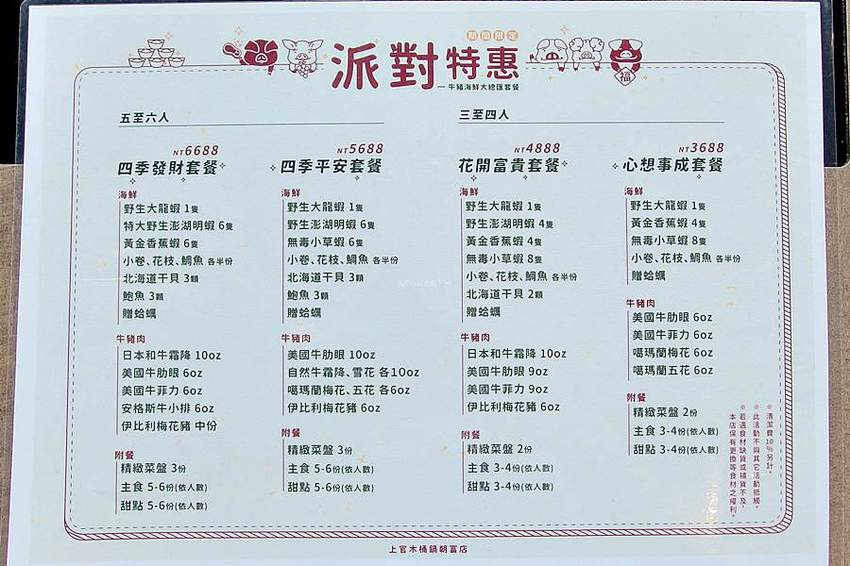 期間限定
派對特惠
福
—牛豬海鮮大總匯套餐
五至六人
NT6688
四季發財套餐
海鮮
野生大龍蝦 1隻
特大野生澎湖明蝦 6隻
黃金香蕉蝦 6隻
小卷、花枝、鯛魚 各半份
北海道干貝 3顆
鮑魚 3顆
贈蛤蠣
牛豬肉
日本和牛霜降 10oz
美國牛肋眼 6oz
美國牛菲力 6oz
安格斯牛小排 6oz
伊比利梅花豬 中份
附餐
精緻菜盤 3份
主食 5-6份(依人數)
甜點 5-6份(依人數)
NT5688
四季平安套餐
海鮮
野生大龍蝦 1隻
野生澎湖明蝦 6隻
無毒小草蝦 6隻
小卷、花枝、鯛魚 各半份
北海道干貝 3顆
鮑魚 3顆
贈蛤蠣
牛豬肉
美國牛肋眼 10oz
自然牛霜降、雪花 各10oz
噶瑪蘭梅花、五花 各6oz
伊比利梅花豬 6oz
附餐
精緻菜盤 3份
主食 5-6份(依人數)
甜點 5-6份(依人數)
三至四人
NT4888
花開富貴套餐
海鮮
野生大龍蝦 1隻
野生澎湖明蝦 4隻
黃金香蕉蝦 4隻
無毒小草蝦 8隻
小卷、花枝、鯛魚 各半份
北海道干貝 2顆
贈蛤蠣
牛豬肉
日本和牛霜降 10oz
美國牛肋眼 9oz
美國牛菲力 9oz
伊比利梅花豬 6oz
附餐
精緻菜盤 2份
主食 3-4份(依人數)
甜點 3-4份(依人數)
NT3688
心想事成套餐
海鮮
野生大龍蝦 1隻
黃金香蕉蝦 4隻
無毒小草蝦 8隻
小卷、花枝、鯛魚 各半份
贈蛤蠣
牛豬肉
美國牛肋眼 6oz
美國牛菲力 6oz
噶瑪蘭梅花 6oz
噶瑪蘭五花 6oz
附餐
精緻菜盤 2份
主食 3-4份(依人數)
甜點 3-4份(依人數)
※清潔費10%另計。
※此活動不與其它活動抵觸。
※若遇食材缺貨或補貨不及，
本店保有更換等食材之權利。
上官木桶鍋朝富店